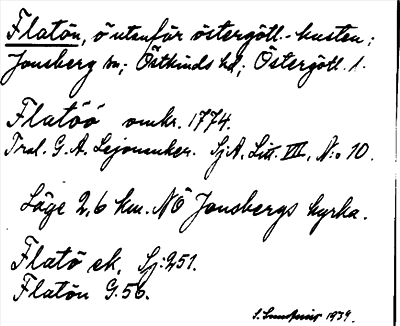 Flatön, ö utanför östergötl.-kusten;
Jonsberg sn; Östkinds hd; Östergötl. l.
Flatöö omkr. 1774.
Trol. G. A. Lejonanker. SjA, Litt. III, N:o 10.
Läge 2,6 km. NÖ Jonsbergs kyrka.
Flatö ek, Sj:251.
Flatön G.56.
1939.